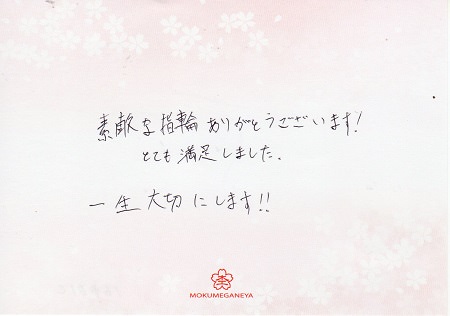 素敵な指輪ありがとうございます!
とても満足しました.
一生大切にします!!
MOKUMEGANEYA